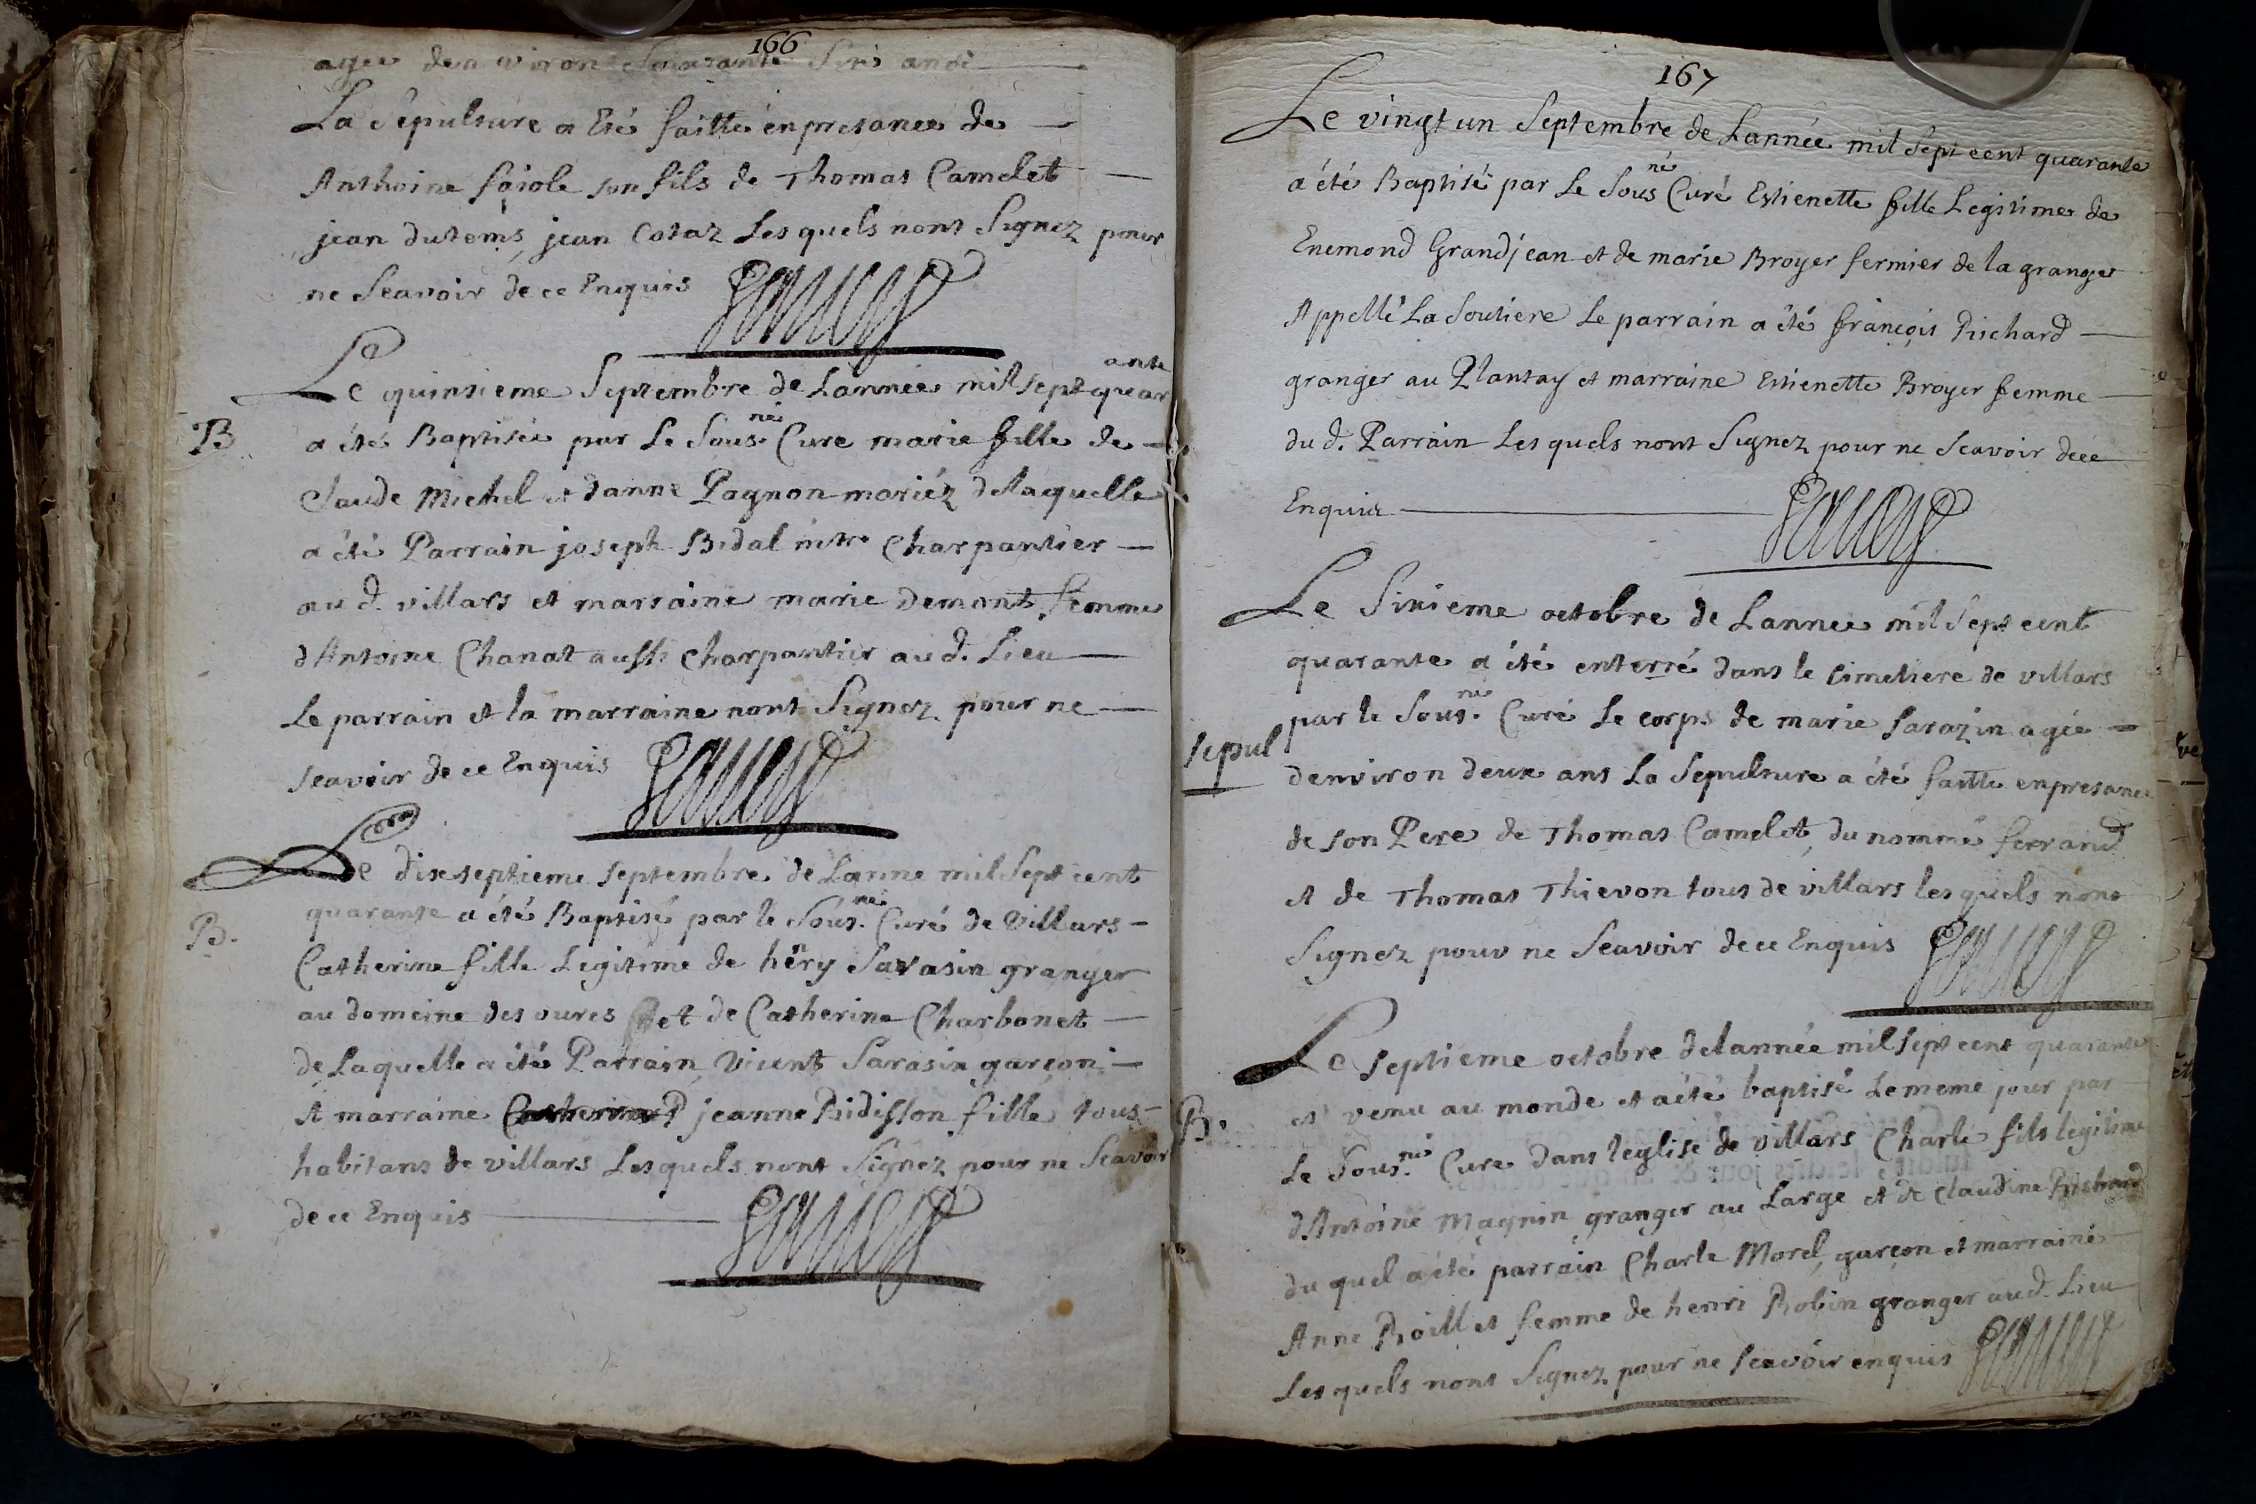 166
agée denviron quarante six ans
La Sepulture a Eté faitte en presance de
Anthoine fajole son fils de Thomas Camelet
jean dutems, jean Cotaz Les quels nont Signez pour
ne Scavoir de ce Enquis
Le quinsieme Septembre de Lannée mil sept quarante
B
a étés Baptisée par Le Sousné Cure marie fille de
Claude Michel et danne Pagnon mariéz de laquelle
a été Parrain joseph Bidal mtre Charpantier
au d. villars et marraine marie demont femme
d'Antoine Chanat aussi Charpantier au d. Lieu
Le parrain et la marraine nont Signez pour ne
scavoir de ce Enquis
Le dixseptieme septembre de Lanne mil Sept cent
quarante a été Baptisé par le Sous.né Curé de Villars
B.
Catherine fille Legitime de hēry Sarasin granger
au domeine des oures et de Catherine Charbonet
de Laquelle a été Parrain, Vicent Sarasin garçon
et marraine jeanne Bidisson fille tous
habitans de villars Lesquels nont Signez pour ne Scavoir
de ce Enquis
167
Le vingt un Septembre de Lannée mil Sept cent quarante
a été Baptisé par Le Sousné Curé Estienette fille Legitime de
Enemond Grandjean et de marie Broyer fermier de la grange
Appellé La Soutiere Le parrain a été françois Pischard
granger au Plantay et marraine Estienette Broyer femme
du d. Parrain Les quels nont Signez pour ne Scavoir dece
Enquis
Le Sixieme octobre de Lannee mil Sept cent
quarante a été enterré dans le cimetiere de villars
par le Sous.né Curé Le corps de marie Sarazin agée
sepul
denviron deux ans La Sepulture a été faitte en presance
de son Pere de Thomas Camelet, du nommé ferrand
et de Thomas Thievon tous de villars les quels nont
Signez pour ne Scavoir de ce Enquis
Le septieme octobre de lannée mil sept cent quarante
est venu au monde et a été baptisé Le meme jour par
B.
Le Sous.né Cure dans leglise de villars Charle fils legitime
d'Antoine Magnin granger au Large et de Claudine Bishard
du quel a été parrain Charle Morel, garçon et marraine
Anne Roillet femme de henri Robin granger au d. Lieu
Les quels nont Signez pour ne scavoir enquis